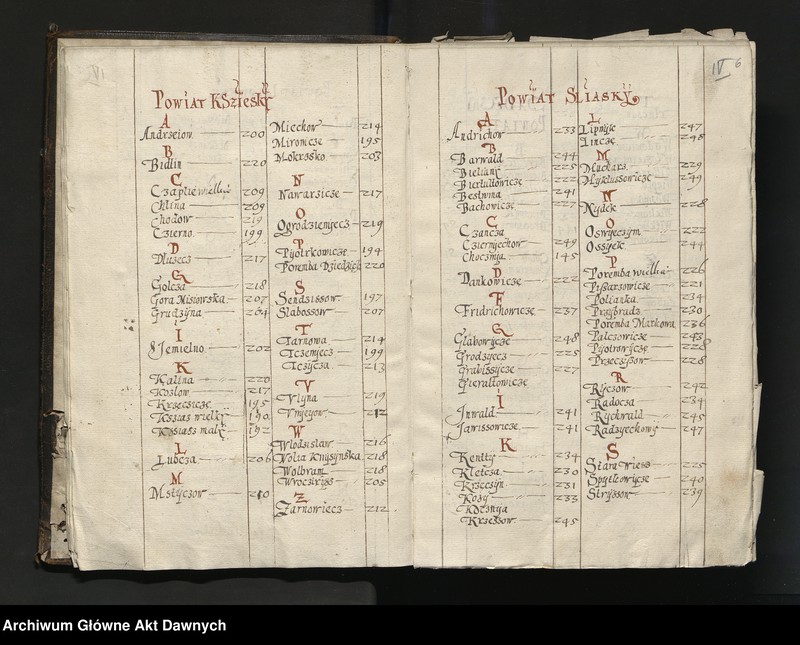 Powiat Kszięsky
A
Andrzeiow 200
B
Bidlin 220
C
Czaple wielkie 209
Chlina 209
Chodow 219
Czierno 199
D
Dluzecz 217
G
Golcza 218
Gora Misiowska 207
Grudzÿna 204
I
Jemielno 202
K
Kalina 220
Kozlow 217
Krzecicze 195
Ksiasz wielki 190
Ksiasz malÿ 192
L
Lubcza 206
M
Mstÿczow 210
Miechow 214
Mironice 195
Mokrsko 203
N
Nawarzicze 217
O
Ogrodzieniecz 219
P
Pÿotrkowicze 194
Poremba Dziedzicz 220
S
Sendzissow 197
Slabossow 207
T
Tarnowa 214
Tczemecz 199
Tczÿcza 213
V
Vlÿna 219
Vnÿeyow 212
W
Wlodzislaw 216
Wolia Knÿsÿnska 218
Wolbram 218
Wroczirÿsz 205
Z
Zarnowiecz 212
Powiat Sliaskÿ
IV 6
A
Andrichow 233
B
Barwald 244
Bielianÿ 225
Biertultowicze 222
Bestwina 241
Bachowicze 227
C
Czancza
Czierniechow 249
Choczniia 145
D
Dankowicze 222
F
Fridrichowicze 237
G
Glabowÿcze 248
Grodzÿecz 225
Grabissÿcze 227
Gieraltowicze
I
Inwald 241
Jawissowicze 241
K
Kenttÿ 234
Kletcza 230
Krzeczÿn 231
Kozÿ 233
Kocznÿa
Krzessow 245
L
Lipnÿk 247
Lincze 248
M
Mucharz 229
Mÿklussowicze 249
N
Nÿdek 228
O
Oswÿeczÿm 222
Ossÿek 244
P
Poremba wielkia 226
Pissarzowicze 221
Polianka 234
Przÿbradz 230
Poremba Markowa 236
Palczowicze 243
Pÿotrowÿcze 228
Przeczÿssow 228
R
Rÿczow 242
Radocza 234
Rÿchwald 245
Radzÿechowÿ 247
S
Stara Wiess 225
Spÿtkowÿcze 240
Strÿssow 239
Archiwum Główne Akt Dawnych